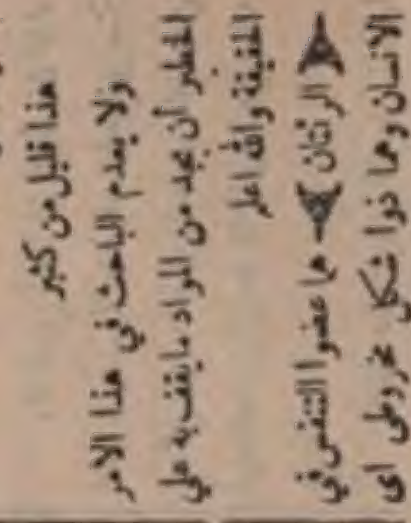 هذا قليل من كثير
ولا يعدم الباحث في هذا الأمر
الخطير أن يجد من المواد ما يقف به علي
الحقيقة والله اعلم
﴿ الرئتان ﴾ ها عضوا التنفس في
الانسان وهما ذوا شكل مخروطي اى